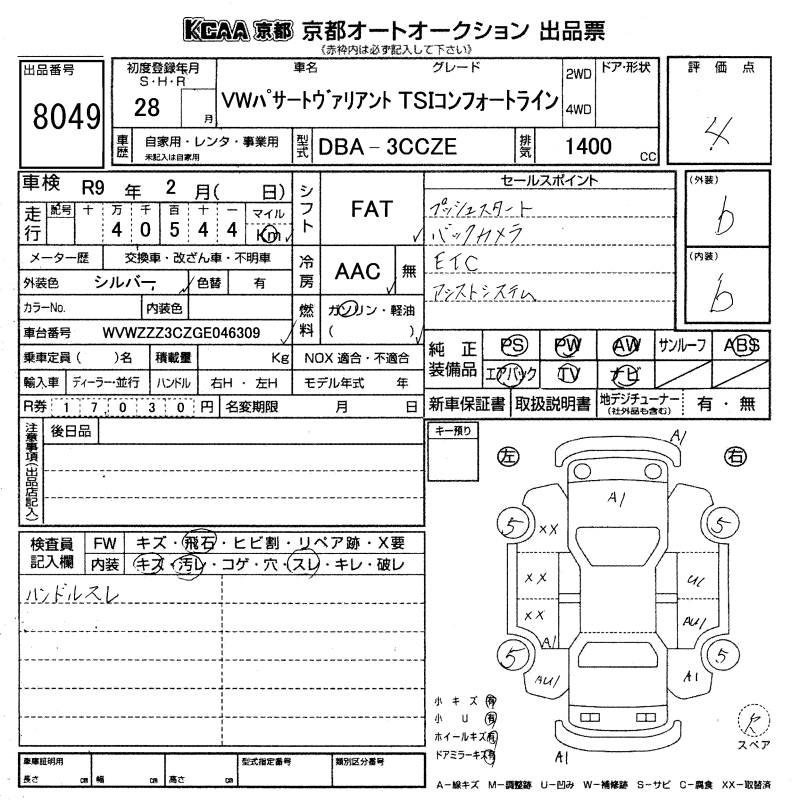 KCAA 京都 京都オートオークション 出品票
《赤枠内は必ず記入して下さい》
出品番号
8049
初度登録年月
S・H・R
28 月
車名 グレード
VWパサートヴァリアント TSIコンフォートライン
2WD
4WD
ドア・形状
評価点
4
車歴 自家用・レンタ・事業用
未記入は自家用
型式 DBA-3CCZE
排気 1400 cc
車検 R9 年 2 月( 日)
走行 記号 十 万 千 百 十 一 マイル
4 0 5 4 4 Km
メーター歴 交換車・改ざん車・不明車
外装色 シルバー 色替 有
カラーNo. 内装色
車台番号 WVWZZZ3CZGE046309
乗車定員( )名 積載量 Kg NOX 適合・不適合
輸入車 ディーラー・並行 ハンドル 右H・左H モデル年式 年
R券 17030 円 名変期限 月 日
シフト FAT
冷房 AAC 無
燃料 ガソリン・軽油
( )
セールスポイント
プッシュスタート
バックカメラ
ETC
アシストシステム
(外装)
b
(内装)
b
純正装備品 PS PW AW サンルーフ ABS
エアバック TV ナビ
新車保証書 取扱説明書 地デジチューナー
(社外品も含む)
有・無
注意事項(出品店記入)
後日品
キー預り
検査員記入欄 FW キズ・飛石・ヒビ割・リペア跡・X要
内装 キズ・汚レ・コゲ・穴・スレ・キレ・破レ
ハンドルスレ
左 右
A1
A1
5 XX 5
XX U1
XX AU1
A1
5 5
AU1 A1
A1
小キズ 有
小U 有
ホイールキズ 有
ドアミラーキズ 有
スペア
車庫証明用
長さ cm 幅 cm 高さ cm
型式指定番号
類別区分番号
A-線キズ M-調整跡 U-凹み W-補修跡 S-サビ C-腐食 XX-取替済